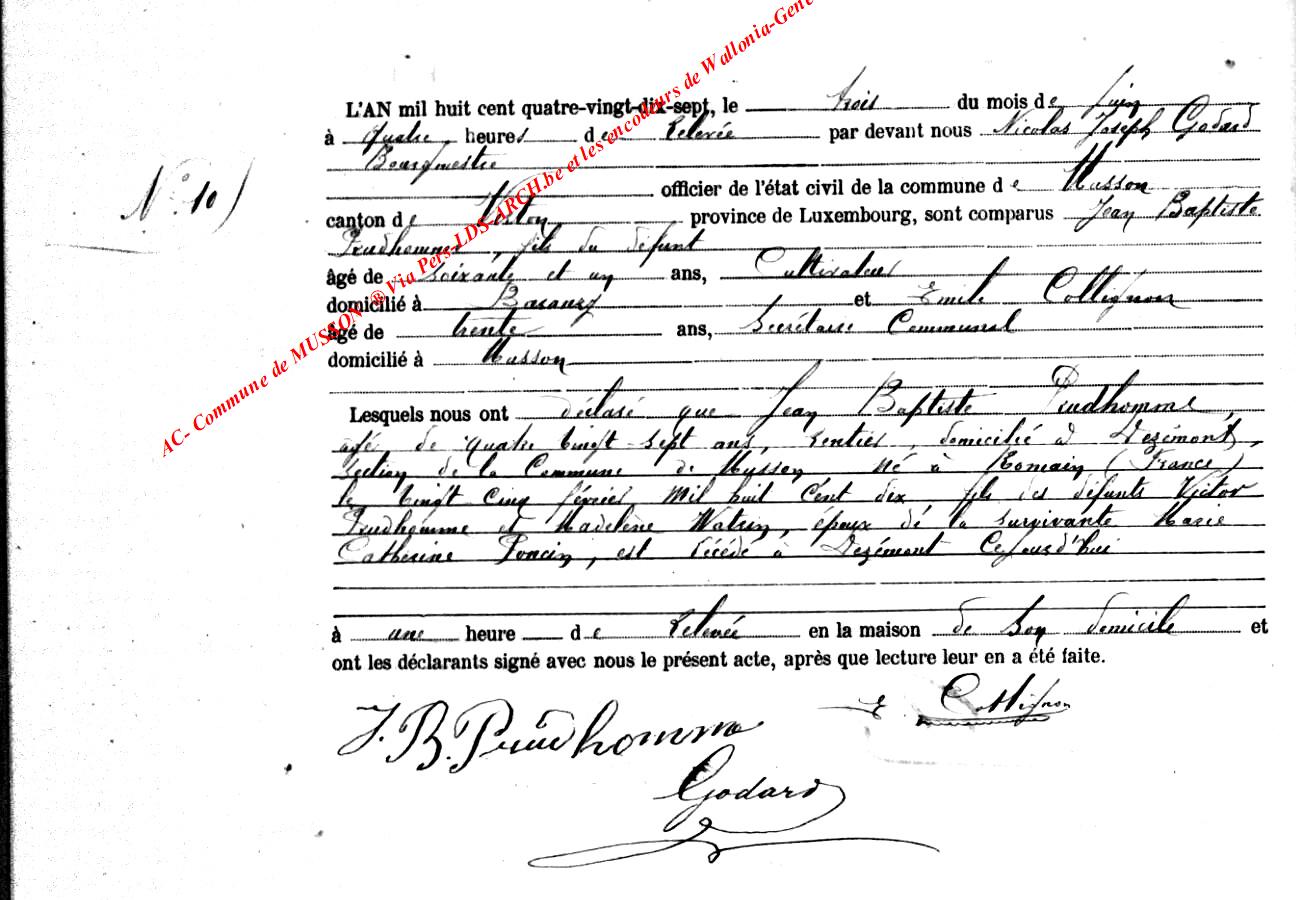 AC- Commune de MUSSON ® Via Pers-LDS-ARCH.be et les encodeurs de Wallonia-Gene
L'AN mil huit cent quatre-vingt-dix-sept, le trois du mois de Juin
à quatre heures de relevée par devant nous Nicolas Joseph Godard
Bourgmestre
officier de l'état civil de la commune de Musson
N° 10)
canton de Virton province de Luxembourg, sont comparus Jean Baptiste
Prudhomme, fils du défunt
âgé de soixante et un ans, Cultivateur
domicilié à Baranzy et Emile Collignon
âgé de trente ans, Secrétaire Communal
domicilié à Musson
Lesquels nous ont déclaré que Jean Baptiste Prudhomme,
agé de quatre vingt sept ans, rentier, domicilié à
section de la Commune de Musson né à Romain (France)
le vingt cinq février mil huit cent dix fils des défunts Victor
Prudhomme et Madelène Watrin, époux de la survivante Marie
Catherine Poncin, est décédé à ce jourd'hui
à une heure de relevée en la maison de son domicile et
ont les déclarants signé avec nous le présent acte, après que lecture leur en a été faite.
J. B. Prudhomme
E Collignon
Godard